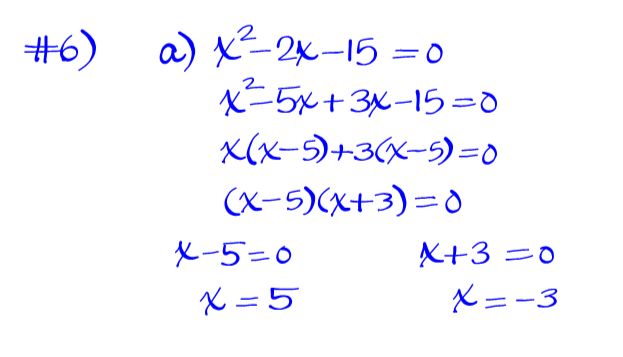 #6) a) x²-2x-15=0
x²-5x+3x-15=0
x(x-5)+3(x-5)=0
(x-5)(x+3)=0
x-5=0 x+3=0
x=5 x=-3